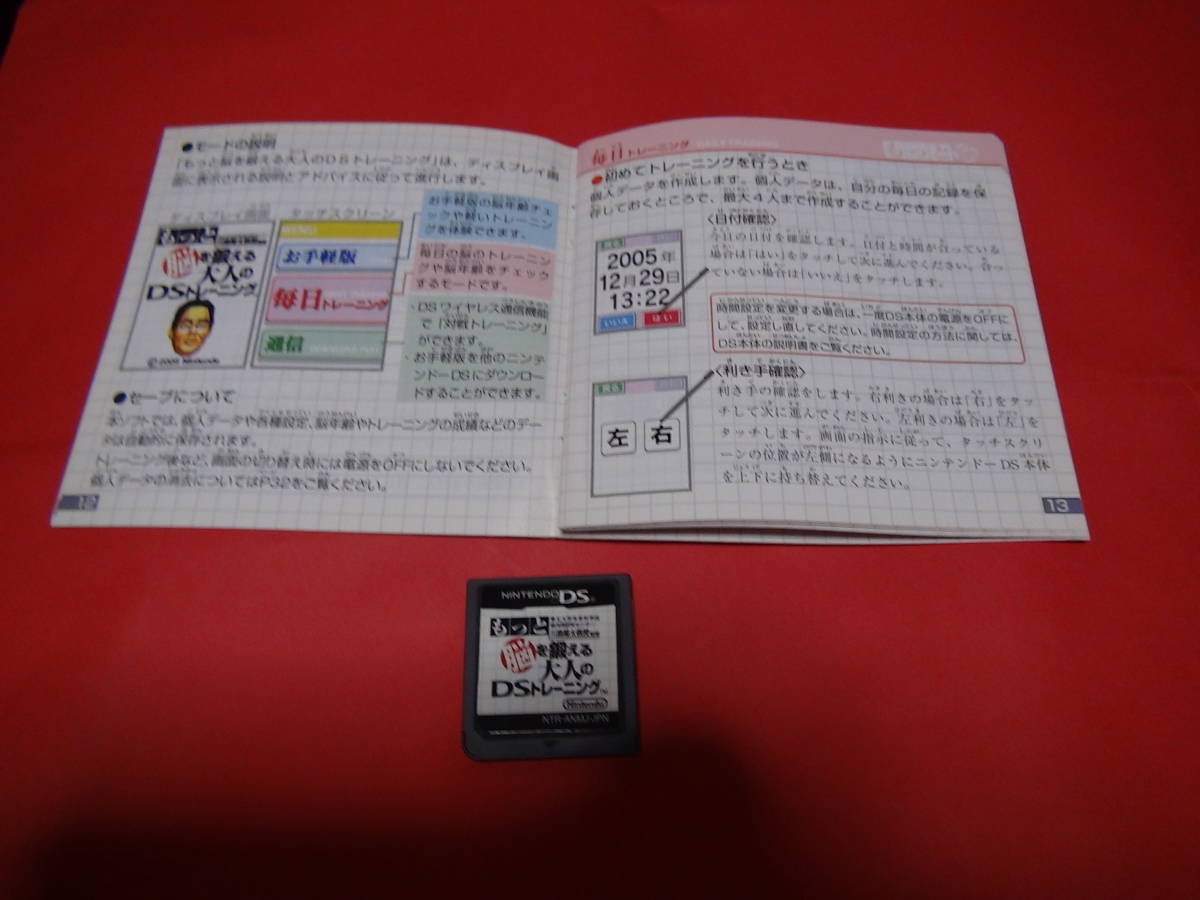 ●モードの説明
「もっと脳を鍛える大人のDSトレーニング」は、ディスプレイ画
面に表示される説明とアドバイスに従って進行します。
ディスプレイ画面
タッチスクリーン
もっと
脳を鍛える
大人の
DSトレーニング
©2005 Nintendo
MENU
お手軽版
毎日トレーニング
通信
お手軽版の脳年齢チェ
ックや軽いトレーニン
グを体験できます。
毎日の脳のトレーニン
グや脳年齢をチェック
するモードです。
・DSワイヤレス通信機能
で「対戦トレーニング」
ができます。
・お手軽版を他のニンテ
ンドーDSにダウンロー
ドすることができます。
●セーブについて
本ソフトでは、個人データや各種設定、脳年齢やトレーニングの成績などのデー
タは自動的に保存されます。
トレーニング後など、画面の切り替え時には電源をOFFにしないでください。
個人データの消去についてはP.32をご覧ください。
12
毎日トレーニング
DAILY TRAINING
●初めてトレーニングを行うとき
個人データを作成します。個人データは、自分の毎日の記録を保
存しておくところで、最大4人まで作成することができます。
〈日付確認〉
今日の日付を確認します。日付と時間が合っている
場合は「はい」をタッチして次に進んでください。合っ
ていない場合は「いいえ」をタッチします。
戻る
2005年
12月29日
13:22
いいえ
はい
時間設定を変更する場合は、一度DS本体の電源をOFFに
して、設定し直してください。時間設定の方法に関しては、
DS本体の説明書をご覧ください。
〈利き手確認〉
利き手の確認をします。右利きの場合は「右」をタッ
チして次に進んでください。左利きの場合は「左」を
タッチします。画面の指示に従って、タッチスクリ
ーンの位置が左側になるようにニンテンドーDS本体
を上下に持ち替えてください。
戻る
左
右
13
NINTENDO DS
もっと
脳を鍛える
大人の
DSトレーニング™
Nintendo
NTR-ANMJ-JPN